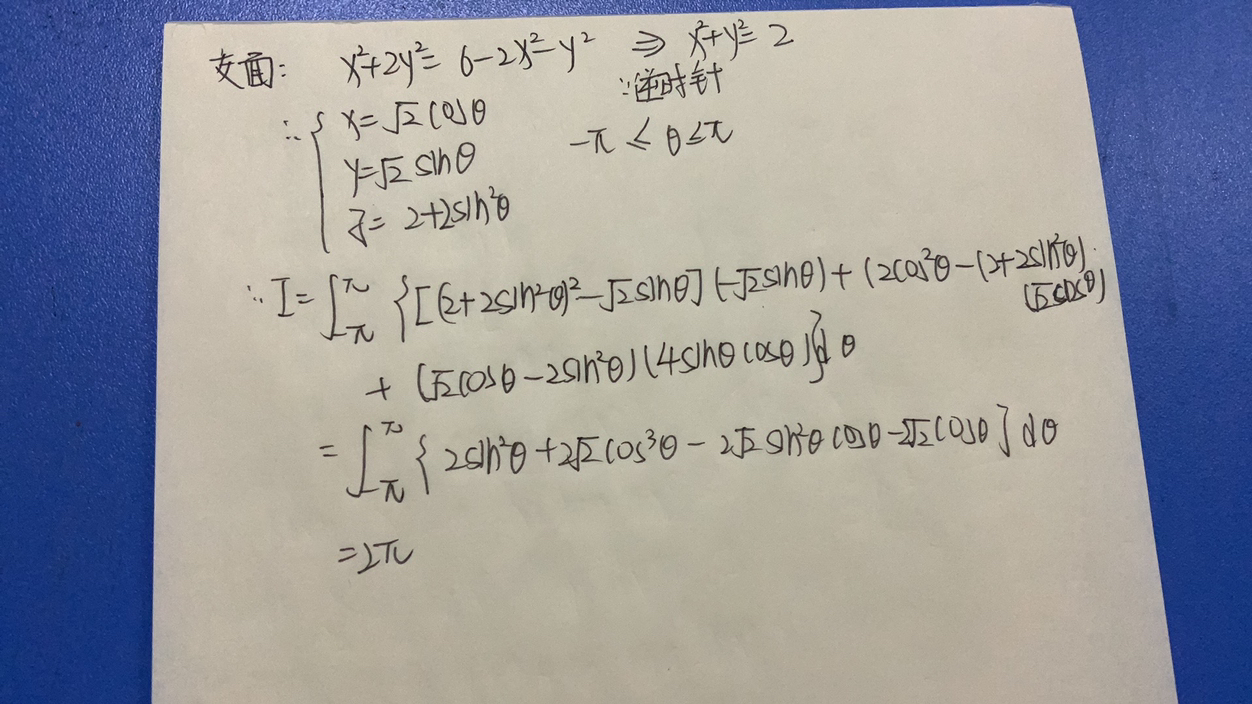 交面: x²+2y²= 6-2x²-y² ⇒ x²+y²=2
∵逆时针
∴ { x=√2cosθ
y=√2sinθ -π ≤ θ≤π
z= 2+2sin²θ
∴ I=∫_{-π}^{π} {[(2+2sin²θ)²-√2sinθ](-√2sinθ)+(2cos²θ-(2+2sin²θ)·
(√2cosθ)
+ (√2cosθ-2sin²θ)(4sinθcosθ)}dθ
=∫_{-π}^{π} {2sin²θ+2√2cos³θ-2√2sin²θcosθ-2√2cosθ]dθ
=2π